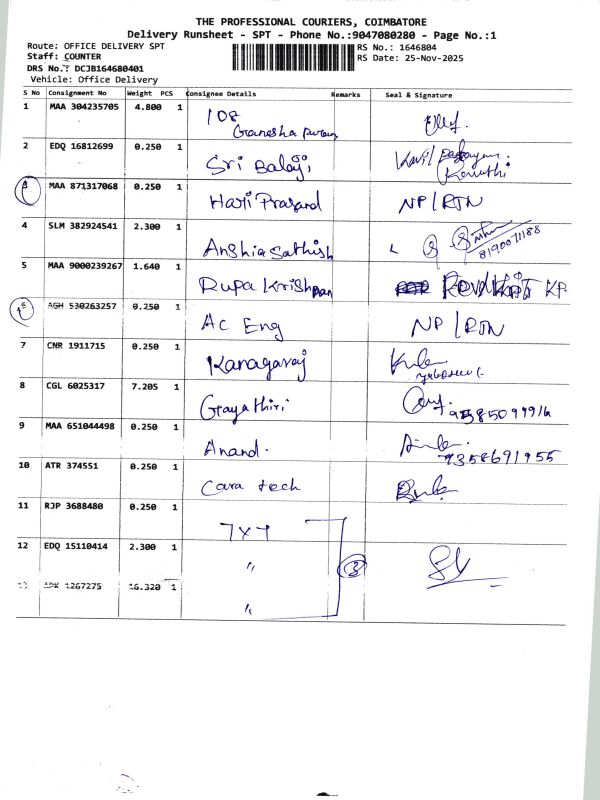 THE PROFESSIONAL COURIERS, COIMBATORE
Delivery Runsheet - SPT - Phone No.:9047080280 - Page No.:1
Route: OFFICE DELIVERY SPT RS No.: 1646804
Staff: COUNTER RS Date: 25-Nov-2025
DRS No.: DCJB164680401
Vehicle: Office Delivery
S No Consignment No Weight PCS Consignee Details Remarks Seal & Signature
1 MAA 304235705 4.800 1 108
Ganesha
2 EDQ 16812699 0.250 1 Sri Balaji
3 MAA 871317068 0.250 1 Hari Prasand NP/RTN
4 SLM 382924541 2.300 1 Anshia Sathish
8190071188
5 MAA 9000239267 1.640 1 Rupa Krishnan
6 AGH 530263257 0.250 1 AC Eng NP/RTN
7 CNR 1911715 0.250 1 Kanagaraj
8 CGL 6025317 7.205 1 Gayathiri
9 MAA 651044498 0.250 1 Anand.
9358691955
10 ATR 374551 0.250 1 Cara tech
11 RJP 3688480 0.250 1 TXT
12 EDQ 15110414 2.300 1 "
3
1267275 16.320 1 "